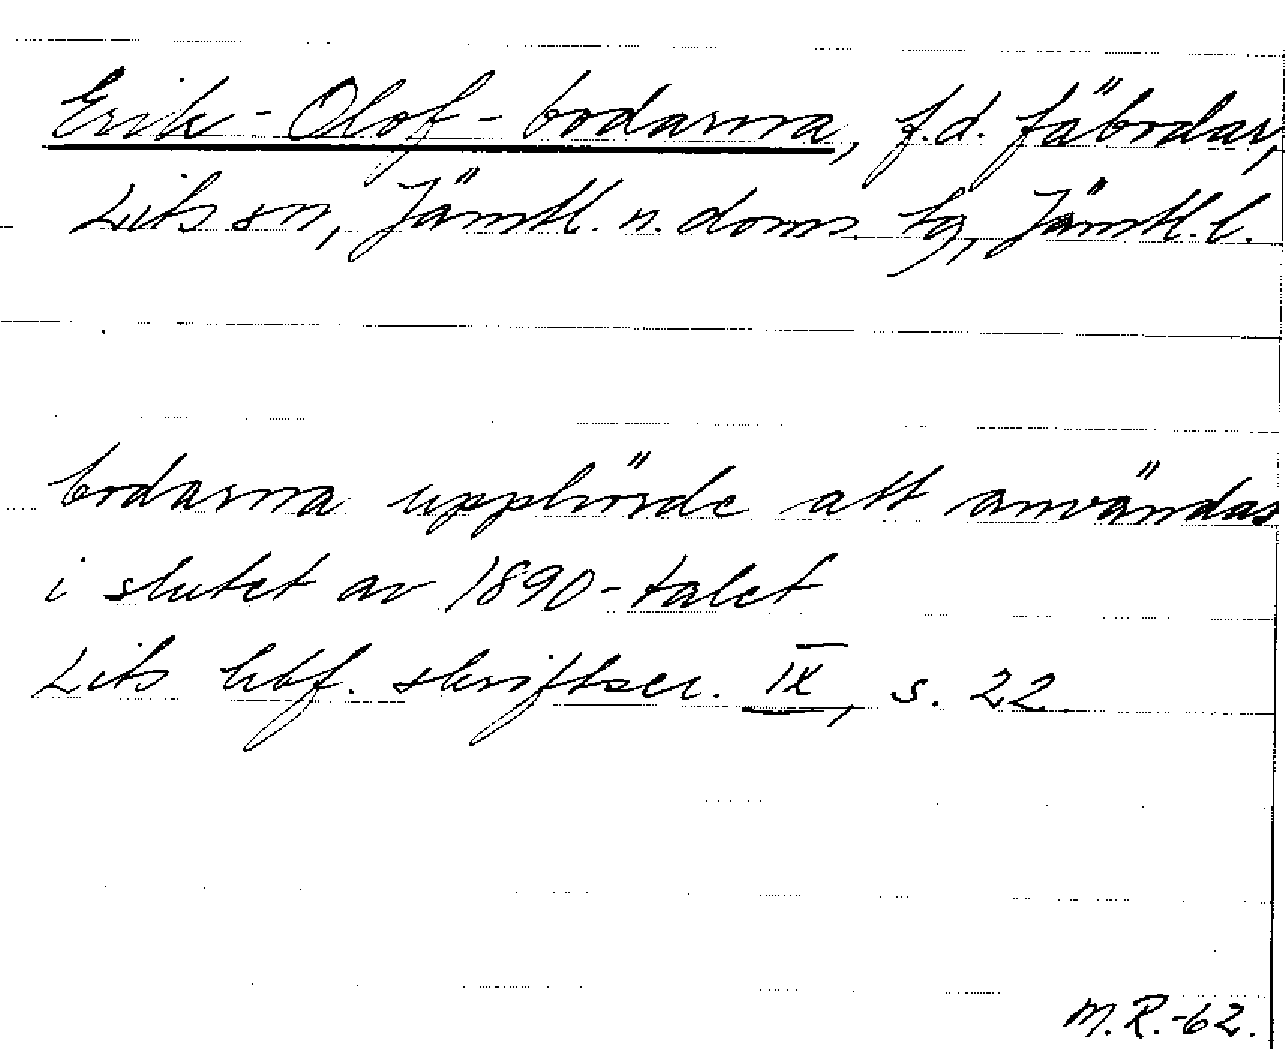 Erik-Olof-bodarna, f.d. fäbodar,
Lits sn, Jämtl. n. doms. hg, Jämtl. l.
bodarna upphörde att användas
i slutet av 1890-talet
Lits hbf. skriftser. IX, s. 22.
M.R.-62.